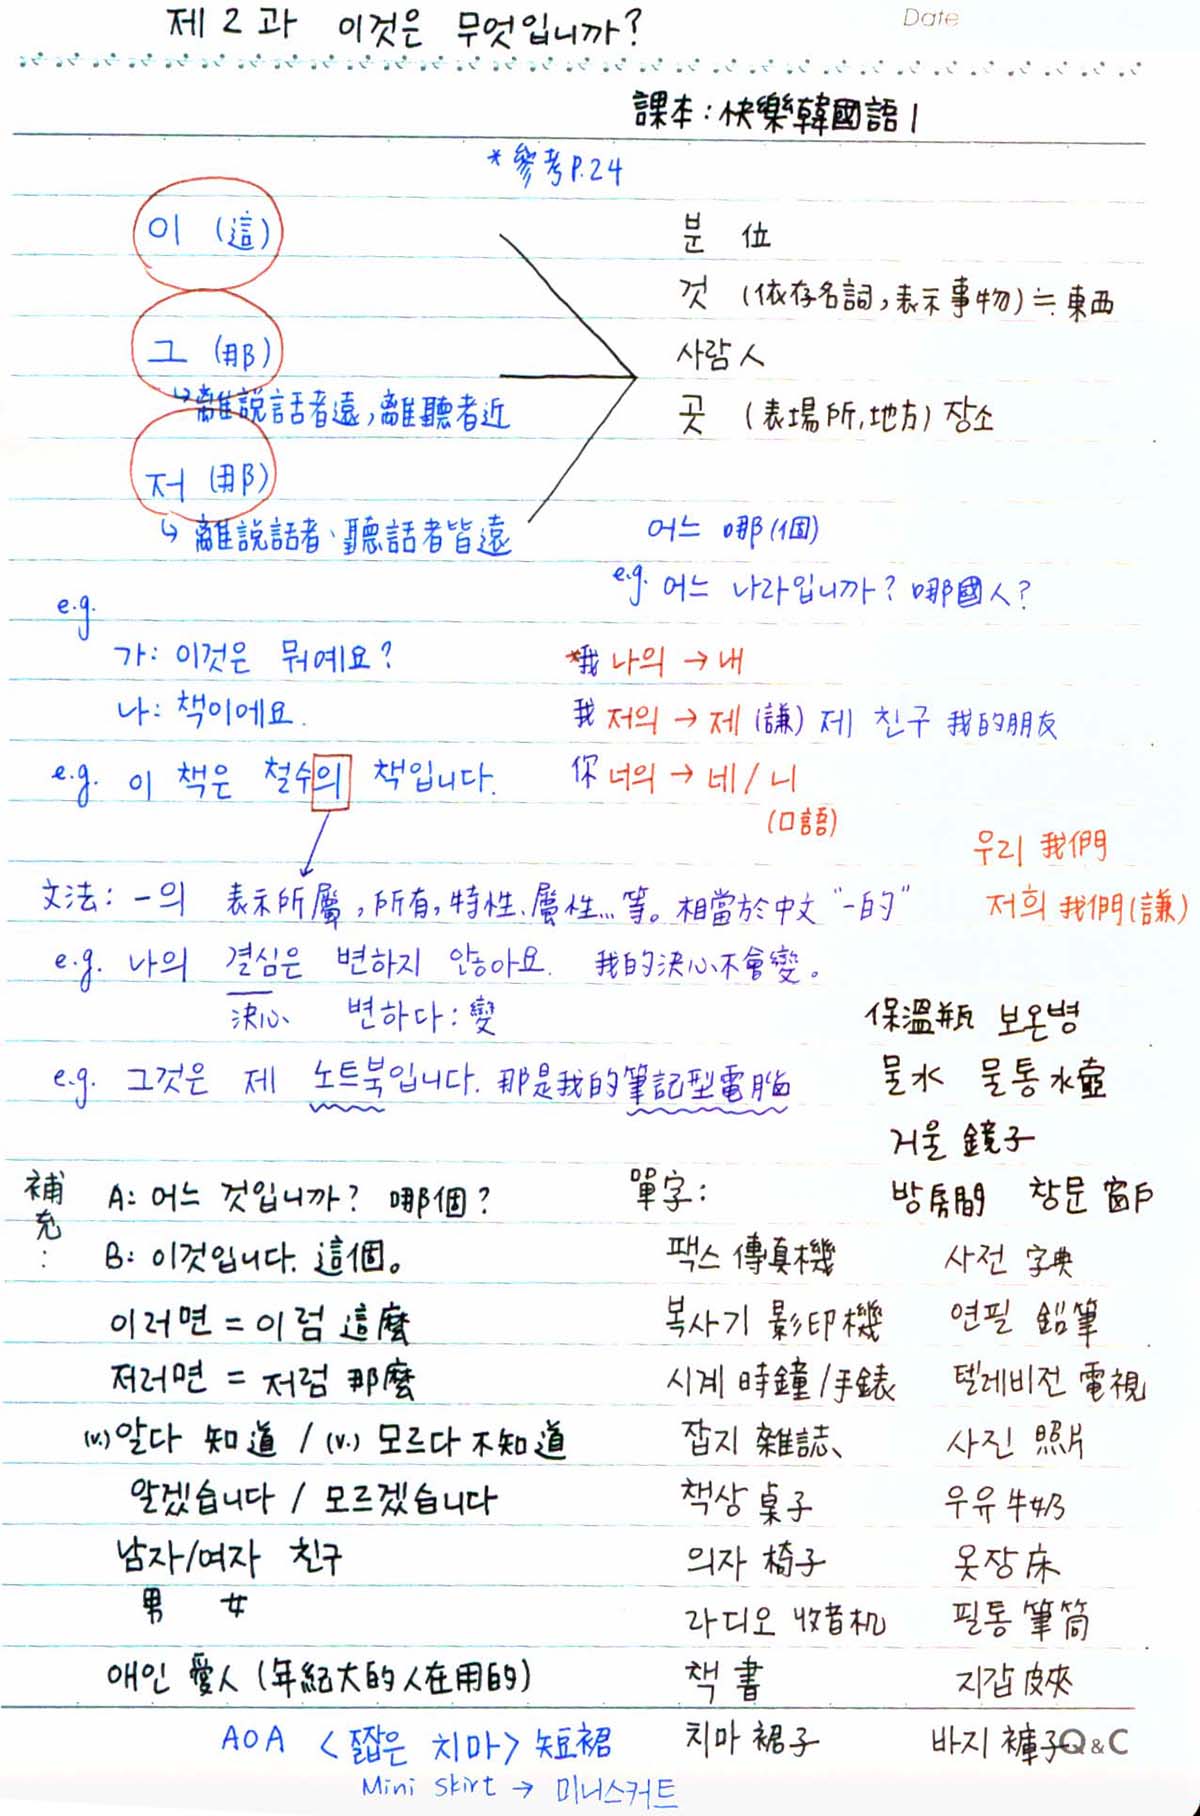 제2과 이것은 무엇입니까?
Date
課本:快樂韓國語1
*參考P.24
이 (這)
분 位
것 (依存名詞,表示事物)≒東西
그 (那)
사람 人
↳離說話者遠,離聽者近
곳 (表場所,地方) 장소
저 (那)
↳ 離說話者、聽話者皆遠
어느 哪(個)
e.g. 어느 나라입니까? 哪國人?
e.g.
가: 이것은 뭐예요?
나: 책이에요.
*我 나의 → 내
我 저의 → 제 (謙) 제 친구 我的朋友
e.g. 이 책은 철수의 책입니다.
你 너의 → 네 / 니
(口語)
우리 我們
저희 我們(謙)
文法: -의 表示所屬,所有,特性、屬性...等。相當於中文 "-的"
e.g. 나의 결심은 변하지 않아요. 我的決心不會變。
決心 변하다: 變
e.g. 그것은 제 노트북입니다. 那是我的筆記型電腦
保溫瓶 보온병
물 水 물통 水壺
거울 鏡子
방 房間 창문 窗戶
補充:
A: 어느 것입니까? 哪個?
B: 이것입니다. 這個。
이러면 = 이럼 這麼
저러면 = 저럼 那麼
(v.) 알다 知道 / (v.) 모르다 不知道
알겠습니다 / 모르겠습니다
남자/여자 친구
男 女
애인 愛人 (年紀大的人在用的)
單字:
팩스 傳真機 사전 字典
복사기 影印機 연필 鉛筆
시계 時鐘/手錶 텔레비전 電視
잡지 雜誌、 사진 照片
책상 桌子 우유 牛奶
의자 椅子 옷장 床
라디오 收音机 필통 筆筒
책 書 지갑 皮夾
치마 裙子 바지 褲子
Q&C
AOA <짧은 치마> 短裙
Mini skirt → 미니스커트